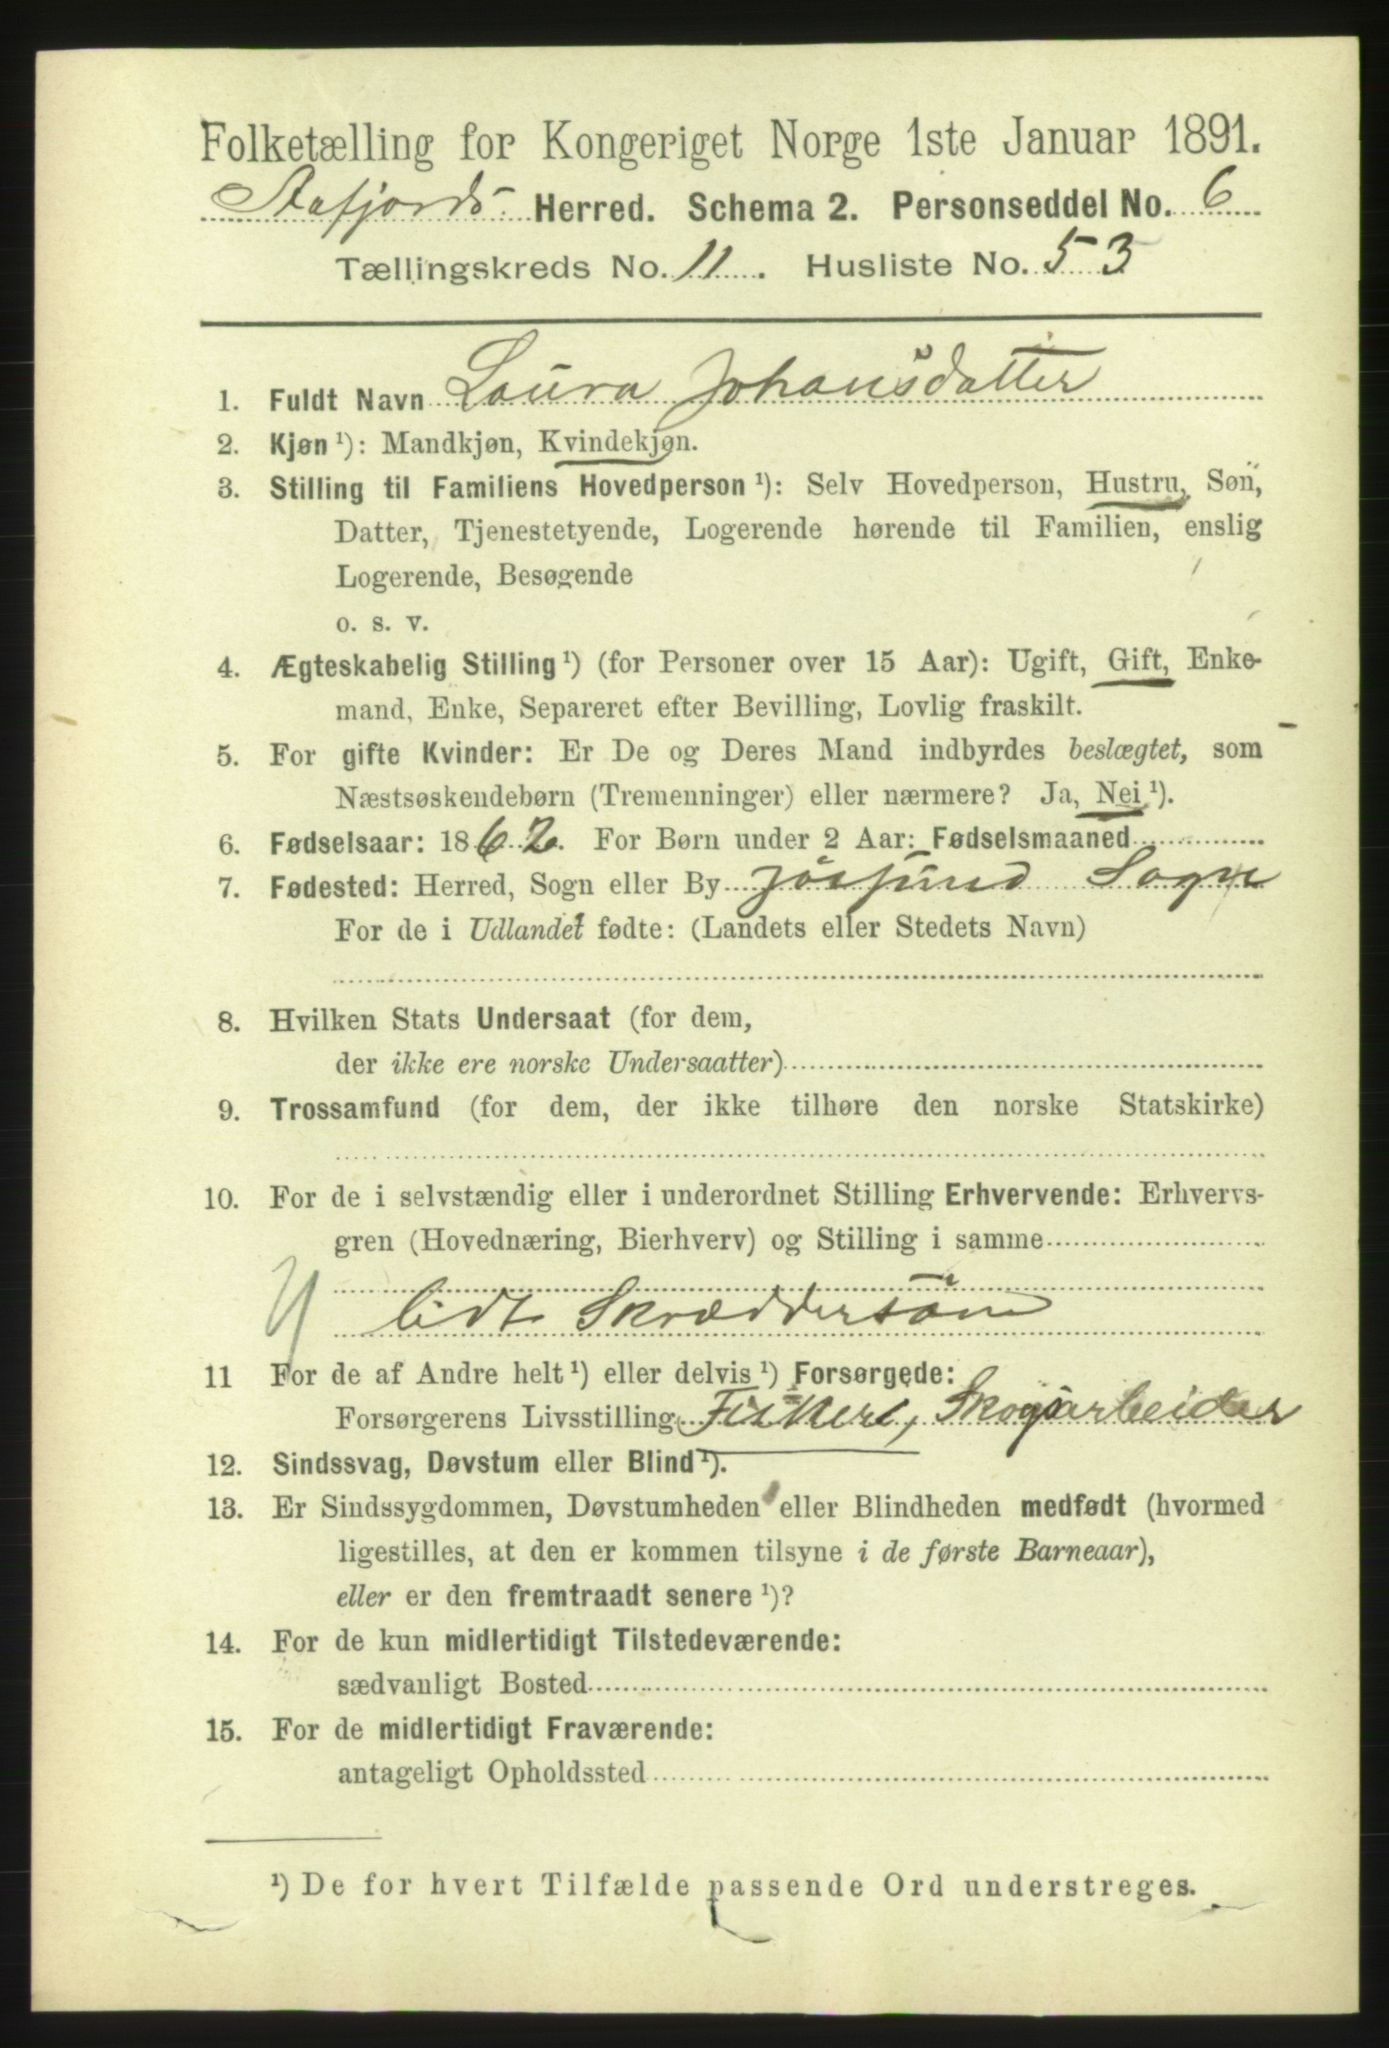 Folketælling for Kongeriget Norge 1ste Januar 1891.
Aafjords Herred. Schema 2. Personseddel No. 6
Tællingskreds No. 11. Husliste No. 53
1. Fuldt Navn Laura Johansdatter
2. Kjøn ¹): Mandkjøn, Kvindekjøn.
3. Stilling til Familiens Hovedperson ¹): Selv Hovedperson, Hustru, Søn,
Datter, Tjenestetyende, Logerende hørende til Familien, enslig
Logerende, Besøgende
o. s. v.
4. Ægteskabelig Stilling ¹) (for Personer over 15 Aar): Ugift, Gift, Enke-
mand, Enke, Separeret efter Bevilling, Lovlig fraskilt.
5. For gifte Kvinder: Er De og Deres Mand indbyrdes beslægtet, som
Næstsøskendebørn (Tremenninger) eller nærmere? Ja, Nei ¹).
6. Fødselsaar: 1862. For Børn under 2 Aar: Fødselsmaaned
7. Fødested: Herred, Sogn eller By Jøssund Sogn
For de i Udlandet fødte: (Landets eller Stedets Navn)
8. Hvilken Stats Undersaat (for dem,
der ikke ere norske Undersaatter)
9. Trossamfund (for dem, der ikke tilhøre den norske Statskirke)
10. For de i selvstændig eller i underordnet Stilling Erhvervende: Erhvervs-
gren (Hovednæring, Bierhverv) og Stilling i samme
lidt Skræddersøm
11 For de af Andre helt ¹) eller delvis ¹) Forsørgede:
Forsørgerens Livsstilling Fisker, Skogsarbeider
12. Sindssvag, Døvstum eller Blind ¹).
13. Er Sindssygdommen, Døvstumheden eller Blindheden medfødt (hvormed
ligestilles, at den er kommen tilsyne i de første Barneaar),
eller er den fremtraadt senere ¹)?
14. For de kun midlertidigt Tilstedeværende:
sædvanligt Bosted
15. For de midlertidigt Fraværende:
antageligt Opholdssted
¹) De for hvert Tilfælde passende Ord understreges.